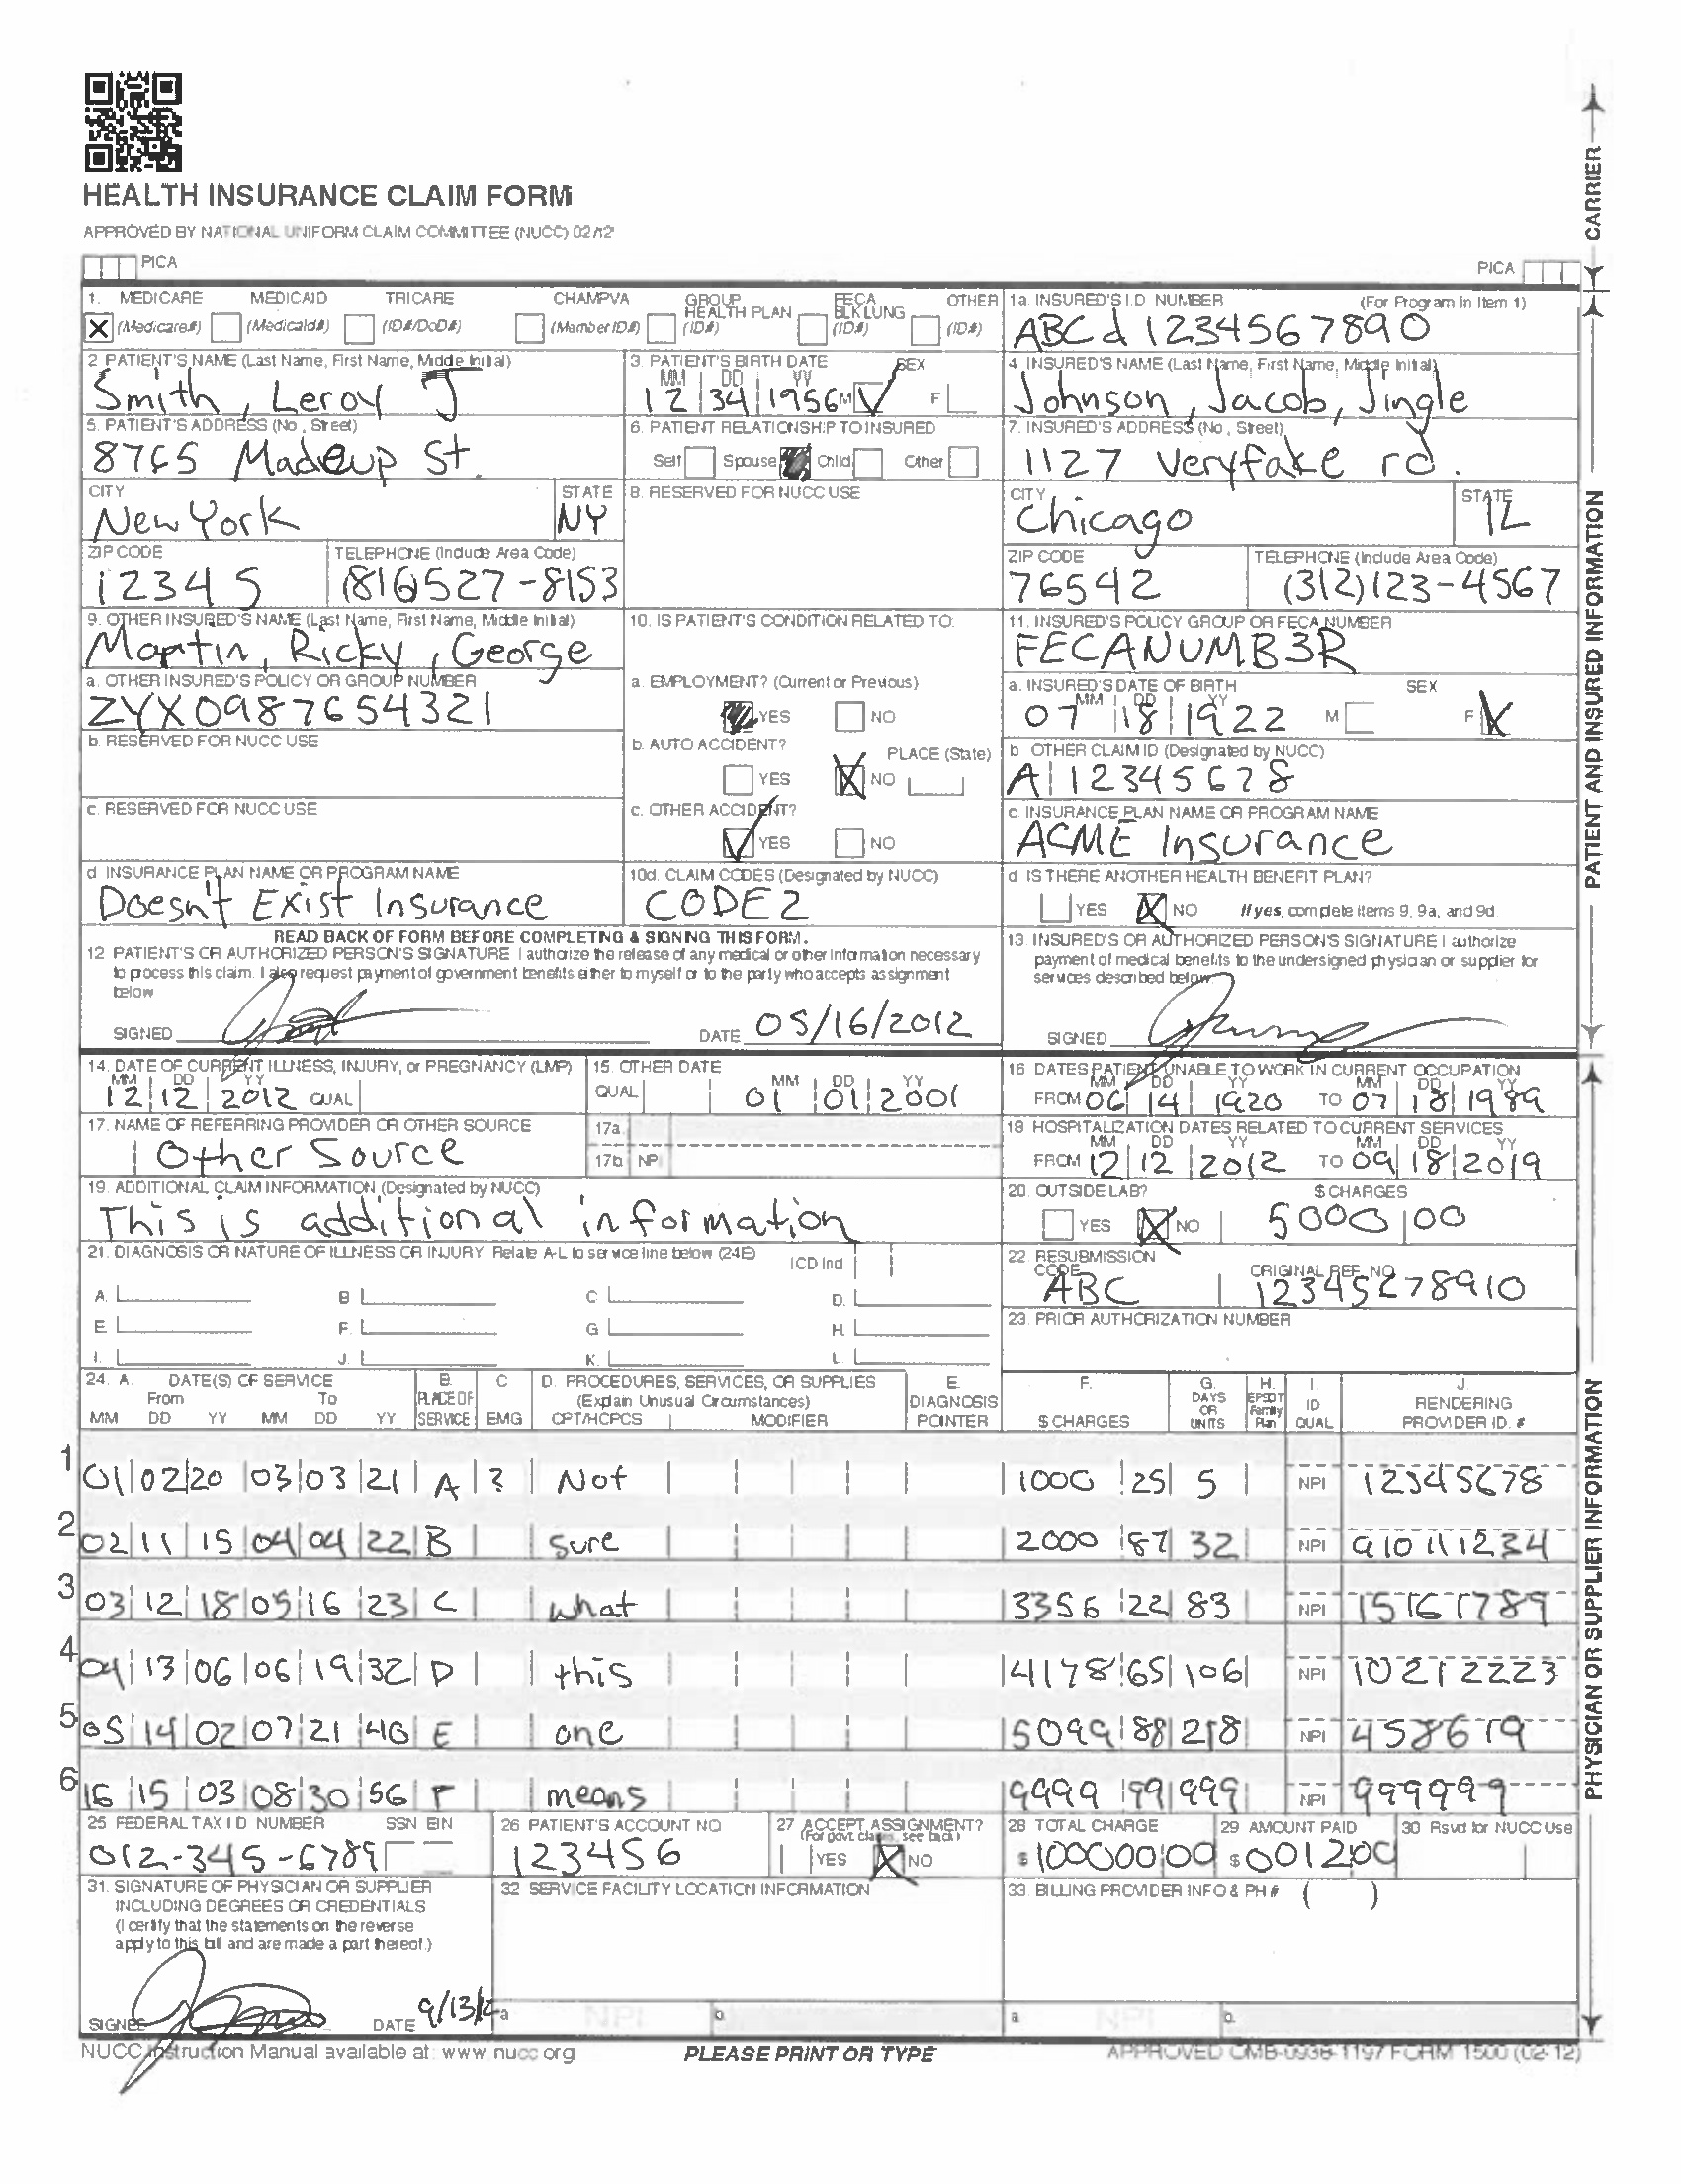 HEALTH INSURANCE CLAIM FORM
APPROVED BY NATIONAL UNIFORM CLAIM COMMITTEE (NUCC) 02/12
PICA
PICA
CARRIER
1. MEDICARE MEDICAID TRICARE CHAMPVA GROUP HEALTH PLAN FECA BLK LUNG OTHER
(Medicare#) (Medicaid#) (ID#/DoD#) (Member ID#) (ID#) (ID#) (ID#)
1a. INSURED'S I.D NUMBER (For Program in Item 1)
ABCd 1234567890
2 PATIENT'S NAME (Last Name, First Name, Middle Initial)
Smith, Leroy J
3. PATIENT'S BIRTH DATE SEX
MM DD YY
12 34 1956 M F
4 INSURED'S NAME (Last Name, First Name, Middle Initial)
Johnson, Jacob, Jingle
5. PATIENT'S ADDRESS (No., Street)
8765 Madeup St.
6. PATIENT RELATIONSHIP TO INSURED
Self Spouse Child Other
7. INSURED'S ADDRESS (No., Street)
1127 Veryfake rd.
CITY STATE
New York NY
8. RESERVED FOR NUCC USE
CITY STATE
Chicago IL
ZIP CODE TELEPHONE (Include Area Code)
12345 (816)527-8153
ZIP CODE TELEPHONE (Include Area Code)
76542 (312)123-4567
9. OTHER INSURED'S NAME (Last Name, First Name, Middle Initial)
Martin, Ricky, George
10. IS PATIENT'S CONDITION RELATED TO:
11. INSURED'S POLICY GROUP OR FECA NUMBER
FECANUMB3R
a. OTHER INSURED'S POLICY OR GROUP NUMBER
ZYX0987654321
a. EMPLOYMENT? (Current or Previous)
YES NO
a. INSURED'S DATE OF BIRTH SEX
MM DD YY
07 18 1922 M F
b. RESERVED FOR NUCC USE
b. AUTO ACCIDENT? PLACE (State)
YES NO
b OTHER CLAIM ID (Designated by NUCC)
A 12345678
c. RESERVED FOR NUCC USE
c. OTHER ACCIDENT?
YES NO
c. INSURANCE PLAN NAME OR PROGRAM NAME
ACME Insurance
d INSURANCE PLAN NAME OR PROGRAM NAME
Doesn't Exist Insurance
10d. CLAIM CODES (Designated by NUCC)
CODE2
d IS THERE ANOTHER HEALTH BENEFIT PLAN?
YES NO If yes, complete items 9, 9a, and 9d
PATIENT AND INSURED INFORMATION
READ BACK OF FORM BEFORE COMPLETING & SIGNING THIS FORM.
12 PATIENT'S OR AUTHORIZED PERSON'S SIGNATURE I authorize the release of any medical or other information necessary
to process this claim. I also request payment of government benefits either to myself or to the party who accepts assignment
below
SIGNED DATE 05/16/2012
13. INSURED'S OR AUTHORIZED PERSON'S SIGNATURE I authorize
payment of medical benefits to the undersigned physician or supplier for
services described below
SIGNED
14. DATE OF CURRENT ILLNESS, INJURY, or PREGNANCY (LMP)
MM DD YY
12 12 2012 QUAL
15. OTHER DATE
QUAL MM DD YY
01 01 2001
16 DATES PATIENT UNABLE TO WORK IN CURRENT OCCUPATION
MM DD YY MM DD YY
FROM 06 14 1920 TO 07 18 1989
17. NAME OF REFERRING PROVIDER OR OTHER SOURCE
Other Source
17a
17b NPI
18 HOSPITALIZATION DATES RELATED TO CURRENT SERVICES
MM DD YY MM DD YY
FROM 12 12 2012 TO 09 18 2019
19. ADDITIONAL CLAIM INFORMATION (Designated by NUCC)
This is additional information
20. OUTSIDE LAB? $ CHARGES
YES NO 5000 00
21. DIAGNOSIS OR NATURE OF ILLNESS OR INJURY Relate A-L to service line below (24E) ICD Ind
A. B C D.
E F. G H.
I. J. K. L.
22. RESUBMISSION
CODE ORIGINAL REF. NO.
ABC 12345278910
23. PRIOR AUTHORIZATION NUMBER
24. A. DATE(S) OF SERVICE B. C D. PROCEDURES, SERVICES, OR SUPPLIES E. F. G. H. I. J.
From To PLACE OF (Explain Unusual Circumstances) DIAGNOSIS DAYS OR UNITS EPSDT Family Plan ID QUAL RENDERING
MM DD YY MM DD YY SERVICE EMG CPT/HCPCS MODIFIER POINTER $ CHARGES PROVIDER ID. #
1 01 02 20 03 03 21 A ? Not 1000 25 5 NPI 12345678
2 02 11 15 04 04 22 B Sure 2000 87 32 NPI 910111234
3 03 12 18 05 16 23 C what 3356 22 83 NPI 15161789
4 04 13 06 06 19 32 D this 4178 65 106 NPI 10212223
5 05 14 02 07 21 40 E one 5099 88 218 NPI 458679
6 16 15 03 08 30 56 F means 9999 99 999 NPI 999999
25 FEDERAL TAX I D NUMBER SSN EIN
012-345-6789
26 PATIENT'S ACCOUNT NO
123456
27 ACCEPT ASSIGNMENT?
(For govt. claims, see back)
YES NO
28 TOTAL CHARGE
$ 100000 00
29 AMOUNT PAID
$ 001200
30 Rsvd for NUCC Use
31. SIGNATURE OF PHYSICIAN OR SUPPLIER
INCLUDING DEGREES OR CREDENTIALS
(I certify that the statements on the reverse
apply to this bill and are made a part thereof.)
SIGNED DATE 9/13/12
32 SERVICE FACILITY LOCATION INFORMATION
a NPI b.
33. BILLING PROVIDER INFO & PH # ( )
a NPI b.
PHYSICIAN OR SUPPLIER INFORMATION
NUCC Instruction Manual available at: www.nucc.org
PLEASE PRINT OR TYPE
APPROVED OMB-0938-1197 FORM 1500 (02-12)